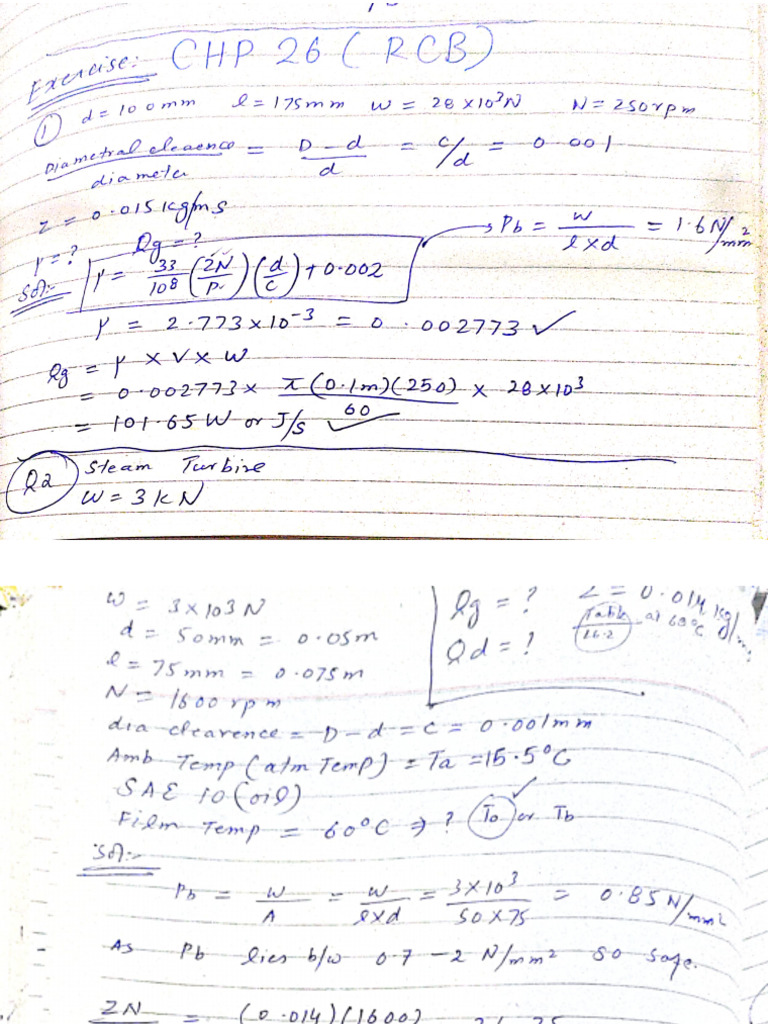 Exercise: CHP 26 ( RCB)
① d = 100mm l = 175mm W = 28 x10³N N = 250rpm
Diametral clearence / diameter = D - d / d = c/d = 0.001
Z = 0.015 kg/ms
μ = ? Qg = ?
→ Pb = W / l x d = 1.6 N/mm²
Sol:- μ = 33/10⁸ (ZN/P) (d/c) + 0.002
μ = 2.773 x10⁻³ = 0.002773 ✓
Qg = μ x V x W
= 0.002773 x π (0.1m) (250) / 60 x 28 x 10³
= 101.65 W or J/s ✓
Q2 Steam Turbine
W = 3 KN
W = 3x103 N
d = 50mm = 0.05m
l = 75 mm = 0.075m
N = 1600 rpm
Qg = ?
Qd = ?
Z = 0.014 kg/
Table 26.2 at 60°C
dia clearence = D - d = c = 0.001mm
Amb Temp (atm Temp) = Ta = 15.5°C
SAE 10 (oil)
Film Temp = 60°C ⇒ ? To or Tb ✓
Sol:-
Pb = W / A = W / l x d = 3 X 10³ / 50 X 75 = 0.85 N/mm²
As Pb lies b/w 0.7 - 2 N/mm² so safe.
ZN = (0.014) (1600)